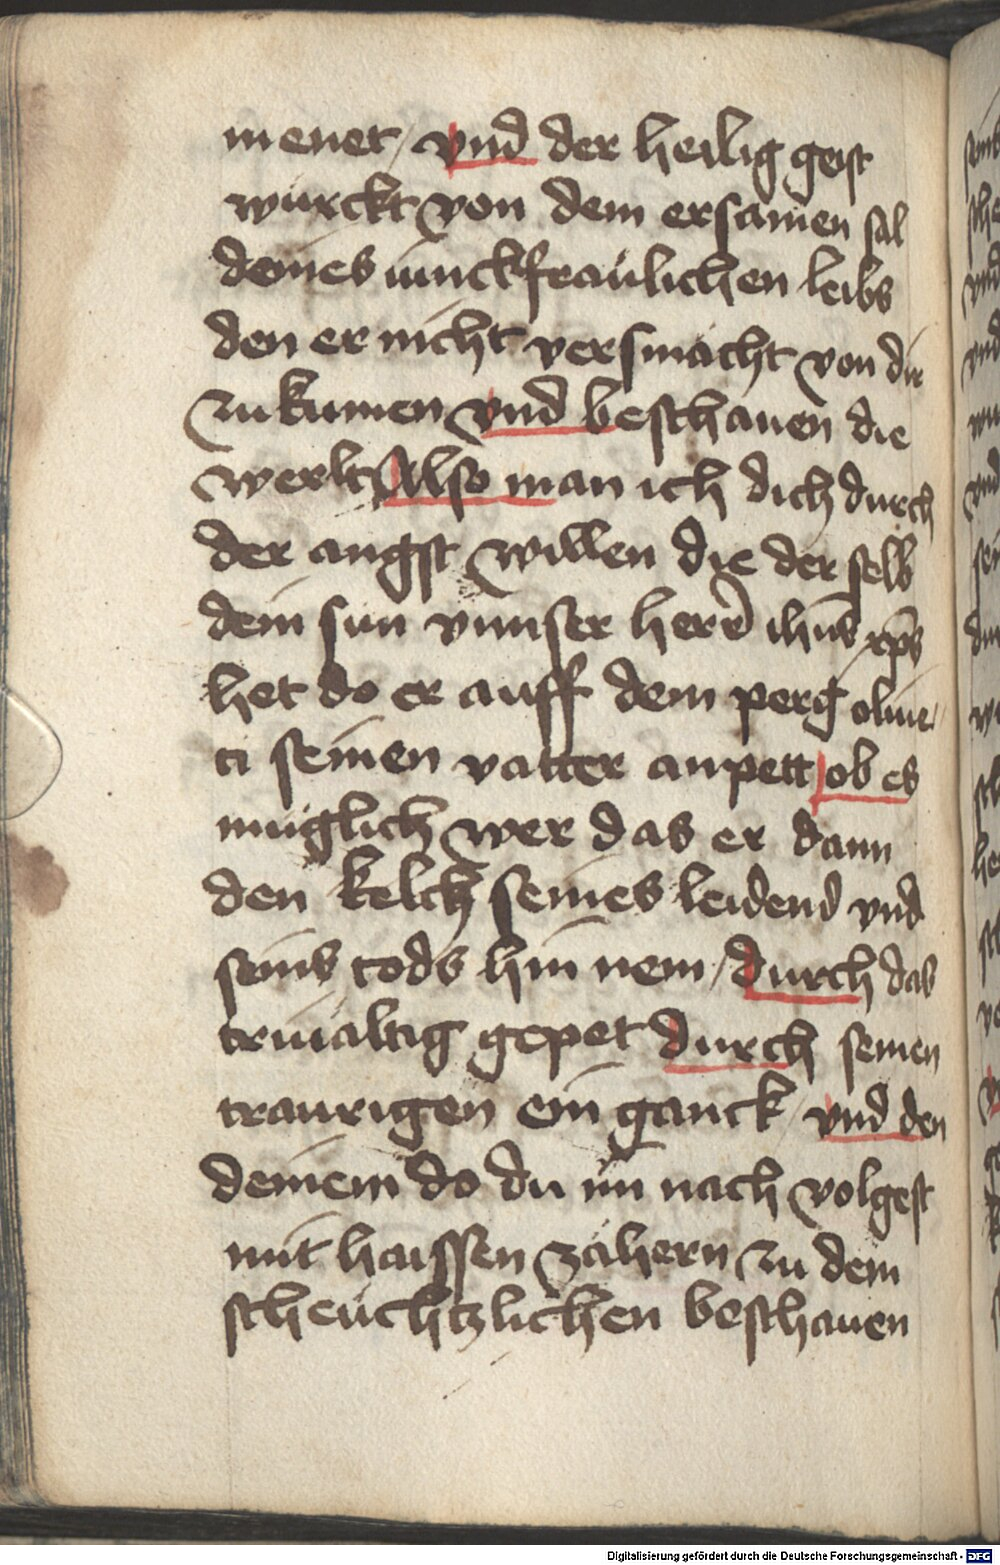 menet / vnd der heilig geist
würckt von dem ersamen sal
deines iunckfraülichen leibs
den er nicht versmacht von dir
zu kumen vnd beschauen die
werlt Also man ich dich durch
der angst willen die der selb
dein sun vnnser herr ihus xps
het do er auff dem perg oliue
ti seinen vatter anpett ob es
müglich wer das er dann
den kelch seines leidend vnd
seins tods hin nem / durch das
triualtig gepet durch seinen
traurigen ein ganck / vnd den
deinem do du im nach volgest
mit haissen zähern zu dem
scheüchtzlichen beschauen
Digitalisierung gefördert durch die Deutsche Forschungsgemeinschaft - DFG